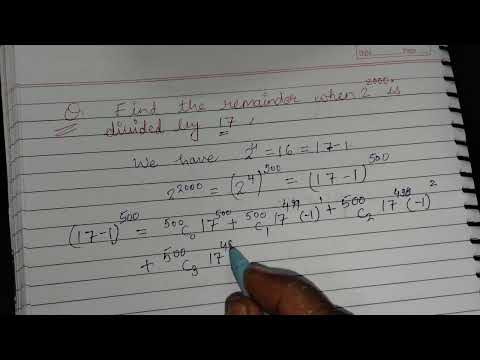 Q. Find the remainder when 2²⁰⁰⁰ is
divided by 17.
We have 2⁴ = 16 = 17-1
2²⁰⁰⁰ = (2⁴)⁵⁰⁰ = (17-1)⁵⁰⁰
(17-1)⁵⁰⁰ = ⁵⁰⁰C₀ 17⁵⁰⁰ + ⁵⁰⁰C₁ 17⁴⁹⁹ (-1)¹ + ⁵⁰⁰C₂ 17⁴⁹⁸ (-1)²
+ ⁵⁰⁰C₃ 17⁴